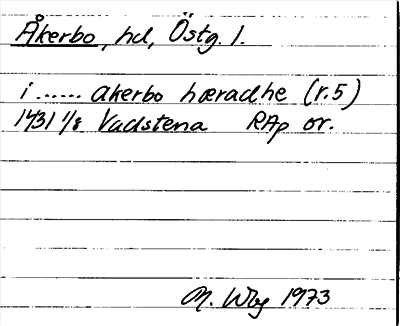 Åkerbo, hd, Östg. l.
i ...... akerbo hæradhe (r.5)
1431 1/8 Vadstena RAp or.
M. Wbg 1973